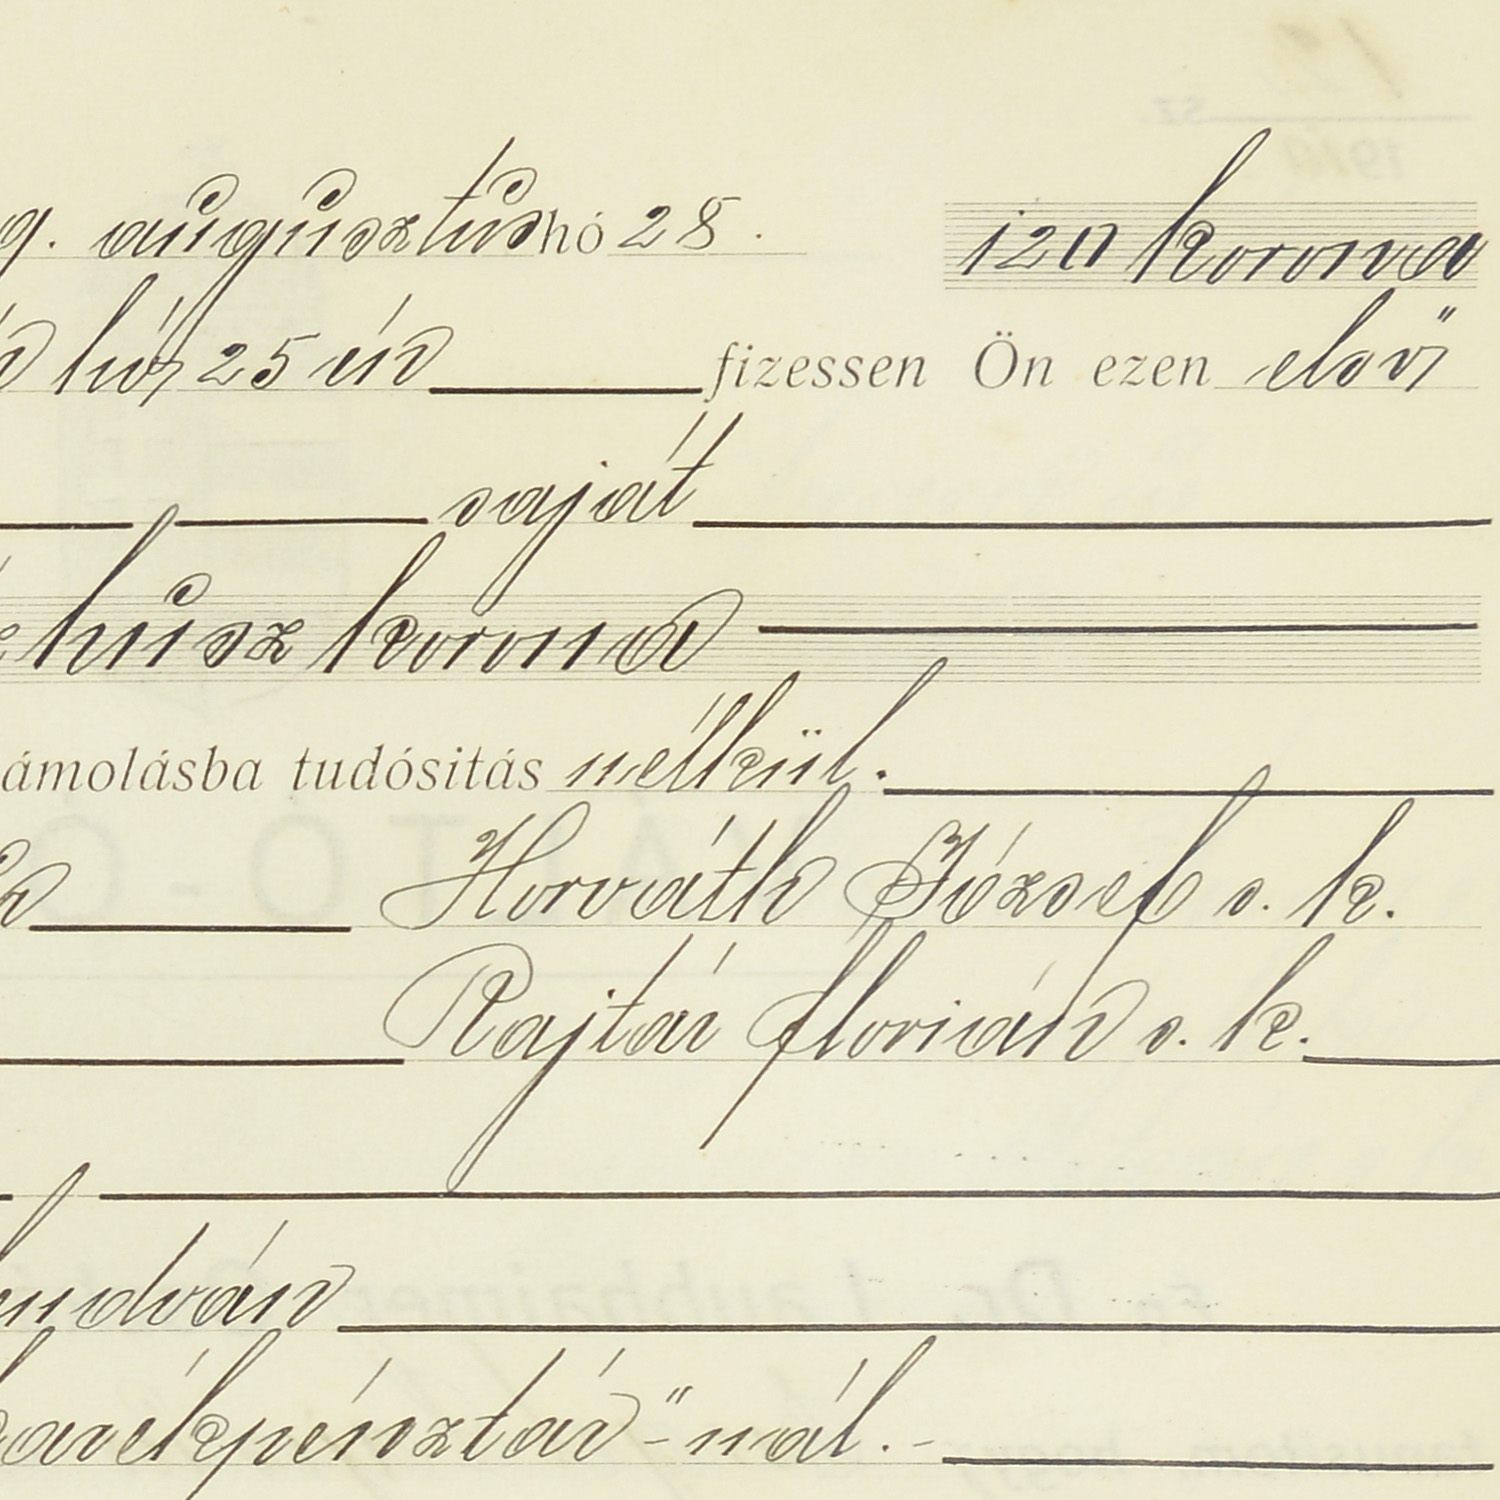 g. augusztus hó 28. 120 korona
hó 25 én fizessen Ön ezen első
saját
húsz korona
ámolásba tudósitás nélkül.
Horváth József s. k.
Rajtár flórián s. k.
endván
karékpénztár"-nál.-